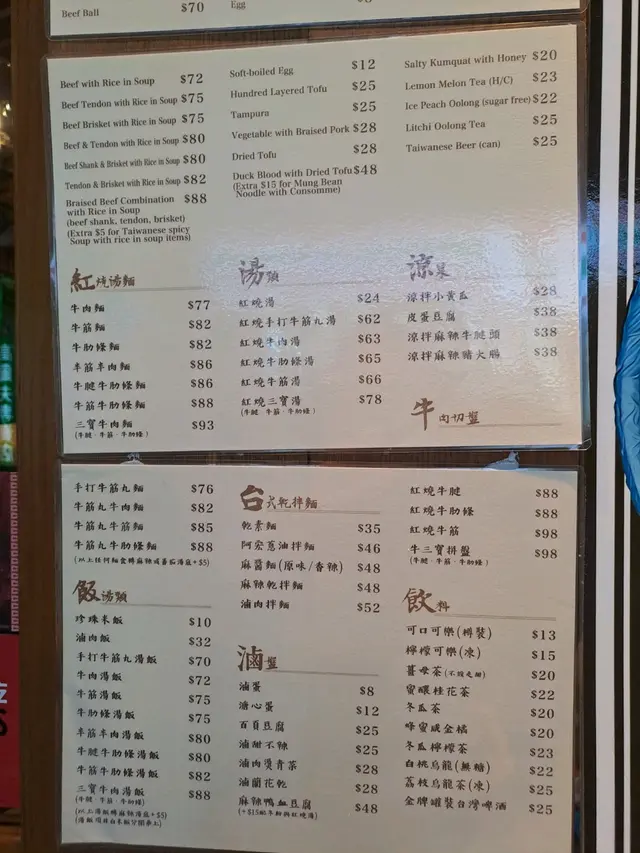 Beef Ball $70
Egg
Beef with Rice in Soup $72
Beef Tendon with Rice in Soup $75
Beef Brisket with Rice in Soup $75
Beef & Tendon with Rice in Soup $80
Beef Shank & Brisket with Rice in Soup $80
Tendon & Brisket with Rice in Soup $82
Braised Beef Combination $88
with Rice in Soup
(beef shank, tendon, brisket)
(Extra $5 for Taiwanese spicy
Soup with rice in soup items)
Soft-boiled Egg $12
Hundred Layered Tofu $25
Tampura $25
Vegetable with Braised Pork $28
Dried Tofu $28
Duck Blood with Dried Tofu $48
(Extra $15 for Mung Bean
Noodle with Consomme)
Salty Kumquat with Honey $20
Lemon Melon Tea (H/C) $23
Ice Peach Oolong (sugar free) $22
Litchi Oolong Tea $25
Taiwanese Beer (can) $25
紅燒湯麵
牛肉麵 $77
牛筋麵 $82
牛肋條麵 $82
半筋半肉麵 $86
牛腱牛肋條麵 $86
牛筋牛肋條麵 $88
三寶牛肉麵 $93
(牛腱．牛筋．牛肋條)
湯類
紅燒湯 $24
紅燒手打牛筋丸湯 $62
紅燒牛肉湯 $63
紅燒牛肋條湯 $65
紅燒牛筋湯 $66
紅燒三寶湯 $78
(牛腱．牛筋．牛肋條)
涼菜
涼拌小黃瓜 $28
皮蛋豆腐 $38
涼拌麻辣牛腱頭 $38
涼拌麻辣豬大腸 $38
牛肉切盤
手打牛筋丸麵 $76
牛筋丸牛肉麵 $82
牛筋丸牛筋麵 $85
牛筋丸牛肋條麵 $88
(以上任何麵食轉麻辣或蕃茄湯底+$5)
飯湯類
珍珠米飯 $10
滷肉飯 $32
手打牛筋丸湯飯 $70
牛肉湯飯 $72
牛筋湯飯 $75
牛肋條湯飯 $75
半筋半肉湯飯 $80
牛腱牛肋條湯飯 $80
牛筋牛肋條湯飯 $82
三寶牛肉湯飯 $88
(牛腱．牛筋．牛肋條)
(以上湯飯轉麻辣湯底+$5)
台式乾拌麵
乾素麵 $35
阿宏蔥油拌麵 $46
麻醬麵(原味/香辣) $48
麻辣乾拌麵 $48
滷肉拌麵 $52
滷盤
滷蛋 $8
溏心蛋 $12
百頁豆腐 $25
滷甜不辣 $25
滷肉燙青菜 $28
滷蘭花乾 $28
麻辣鴨血豆腐 $48
紅燒牛腱 $88
紅燒牛肋條 $88
紅燒牛筋 $98
牛三寶拼盤 $98
(牛腱．牛筋．牛肋條)
飲料
可口可樂(樽裝) $13
檸檬可樂(凍) $15
薑母茶 $20
蜜釀桂花茶 $22
冬瓜茶 $20
蜂蜜咸金橘 $20
冬瓜檸檬茶 $23
白桃烏龍(無糖) $22
荔枝烏龍茶(凍) $25
金牌罐裝台灣啤酒 $25